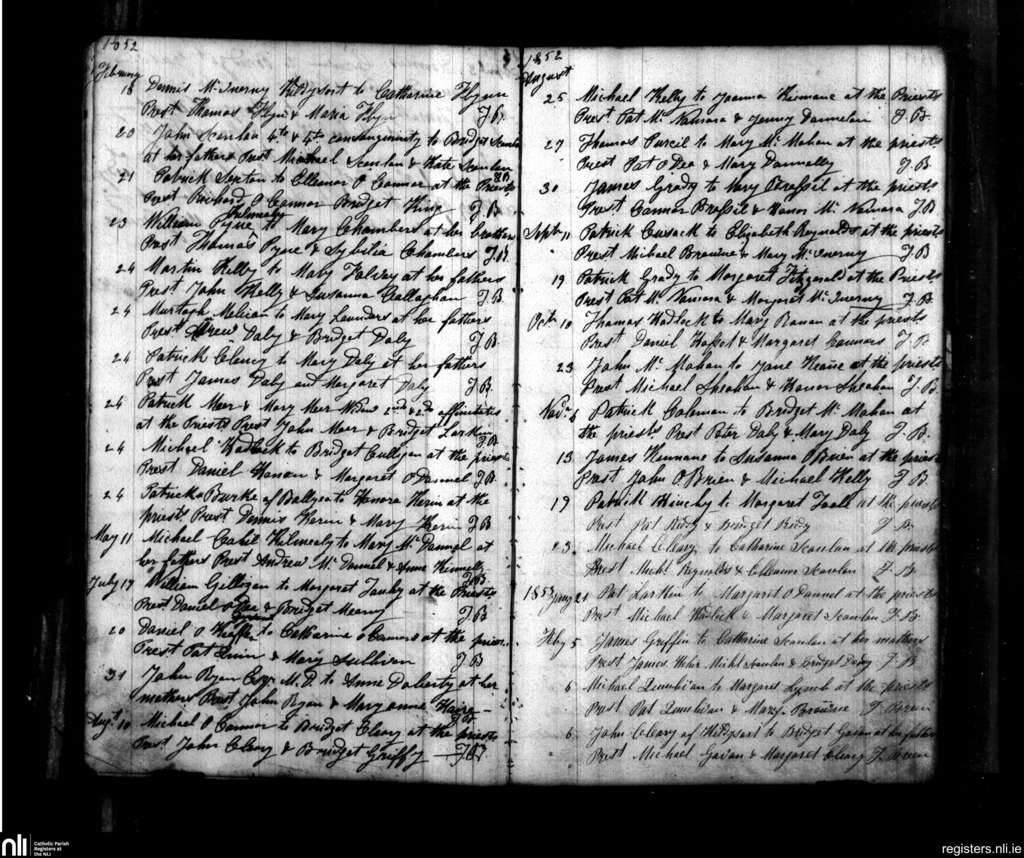 1852
February
18 Dennis McInerny Kildysort to Catharine Flynn
Prest Thomas Flyn & Maria Flyn J B
20 John Scanlan 4th & 4th consanguinity to Bridget Scanlan
at her fathers Prest Michael Scanlan & Kate Scanlan J B
21 Patrick Sexton to Elleanor O Connor at the Priests
Prest Richard O Connor Bridget King J B
23 William Pyne Kilmaly to Mary Chambers at her brothers
Prest Thomas Pyne & Sybilia Chambers J B
24 Martin Kelly to Mary Falvey at her fathers
Prest John Kelly & Susanna Callaghan J B
24 Murtagh Melican to Mary Launders at her fathers
Prest Drew Daly & Bridget Daly J B
24 Patrick Clancy to Mary Daly at her fathers
Prest James Daly and Margaret Daly J B
24 Patrick Meer & Mary Meer Widow 2nd & 2nd affinitatis
at the Priests Prest John Meer & Bridget Larkin J B
24 Michael Hadlock to Bridget Culligan at the priests
Prest Daniel & Margaret O Dannel J B
24 Patrick Burke of Ballyea to Honora Kerin at the
priests Prest Dennis Kerin & Mary Kerin J B
May 11 Michael Cahil Kilmaly to Mary Mc Dannel at
her fathers Prest Andrew Mc Dannel & Anne Kennelly J B
July 17 William Gilligan to Margaret at the Priests
Prest Daniel O Dea & Bridget Meany J B
20 Daniel O to Catharine O Connor at the priests
Prest Pat Quin & Mary Sullivan J B
31 John Ryan Esqr M.D. to Anne Doherty at her
mothers Prest John Ryan & Mary anne J B
Augt 10 Michael O Connor to Bridget Cleary at the priests
Prest John Cleary & Bridget Griffy J B
1852
August
25 Michael Kelly to Joanna Kinnane at the Priests
Prest Pat Mc Namara & Jenny Dannelan J B
27 Thomas Purcil to Mary Mc Mahon at the priests
Prest Pat O Dea & Mary Dannelly J B
30 James Grady to Mary Brassil at the priests
Prest Connor Brassil & Honor Mc Namara J B
Sept 11 Patrick Cusack to Elizabeth Reynolds at the priests
Prest Michael Browne & Mary Mc Inerny J B
19 Patrick Grady to Margaret Fitzgerald at the Priests
Prest Pat Mc Namara & Margaret Mc Inerny J B
Octr 10 Thomas Hadlock to Mary Honan at the priests
Prest Daniel Hasset & Margaret Connors J B
23 John Mc Mahon to Jane Neane at the priests
Prest Michael Sheahan & Honor Sheahan J B
Novr 6 Patrick Coleman to Bridget Mc Mahon at
the priests Prest Peter Daly & Mary Daly J B
13 James Kennane to Susanna O Brien at the priests
Prest John O Brien & Michael Kelly J B
19 Patrick Hinchy to Margaret at the priests
Prest Pat Reidy & Bridget Reidy J B
23 Michael Cleary to Catharine Scanlan at the priests
Prest Michl Reynolds & Elleanor Scanlan J B
1853 Jany 21 Pat Larkin to Margaret O Dannel at the priests
Prest Michael Hadlock & Margaret Scanlan J B
Feby 5 James Griffin to Catharine Scanlan at her mothers
Prest James Michl Scanlan & Bridget J B
6 Michael Quinlivan to Margaret Lynch at the priests
Prest Pat Quinlivan & Mary Browne J Breen
6 John Cleary of Kildysart to Bridget Gavan at her fathers
Prest Michael Gavan & Margaret Cleary J Breen
nli
Catholic Parish
Registers at
the NLI
registers.nli.ie